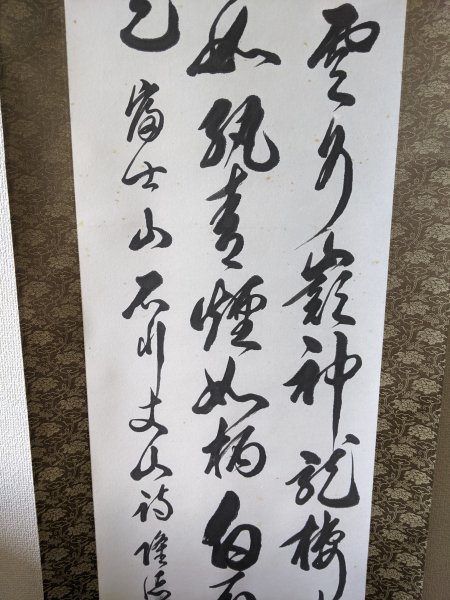 雲外巓神龍棲
如紈素煙如柄白
富士山石川丈山詩